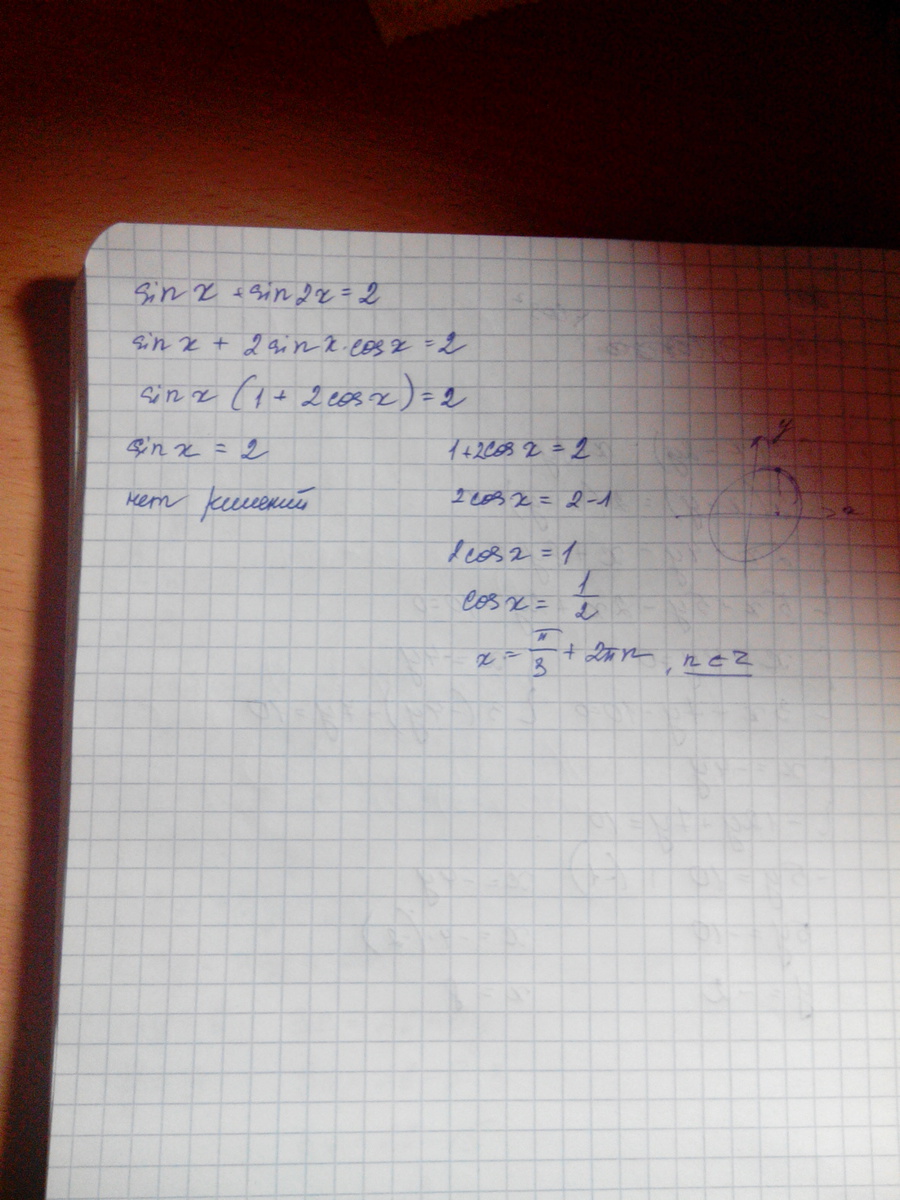 sin x + sin 2x = 2
sin x + 2 sin x · cos x = 2
sin x (1 + 2 cos x) = 2
sin x = 2
нет решений
1 + 2cos x = 2
2 cos x = 2 - 1
2 cos x = 1
cos x = 1/2
x = π/3 + 2πn, n ∈ Z
y
x